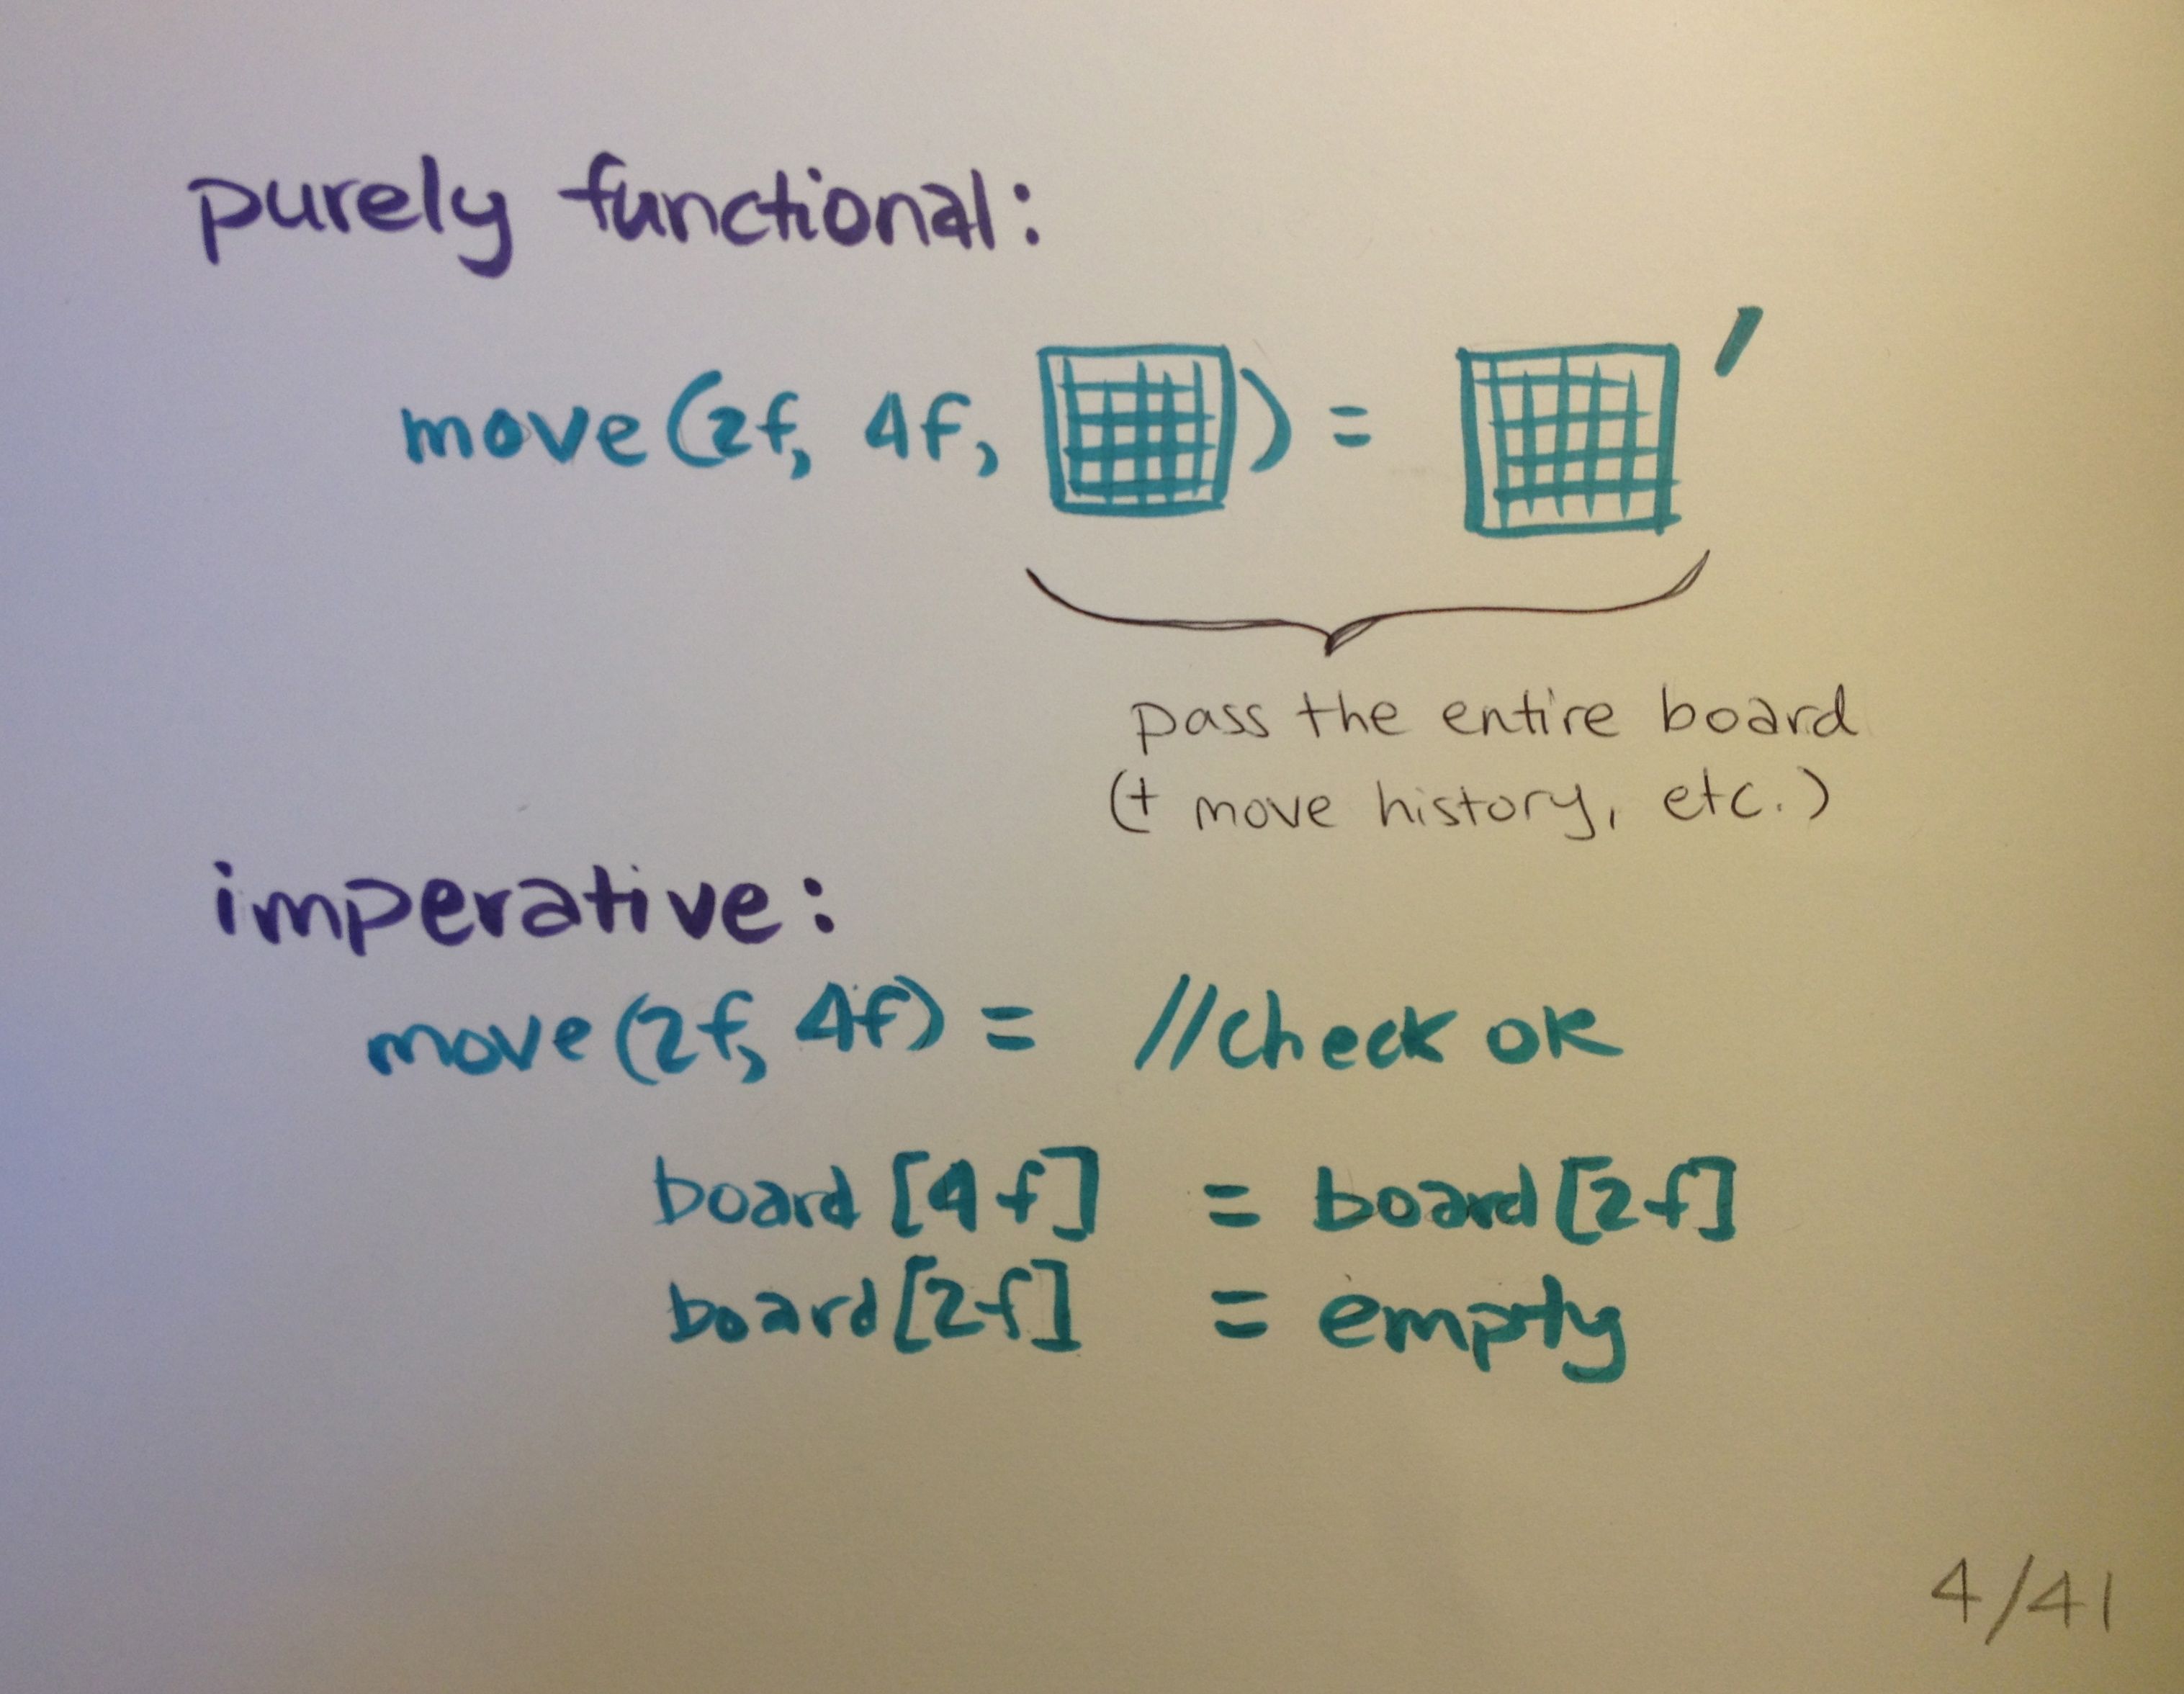 purely functional:
move(2f, 4f, ) = ′
pass the entire board
(+ move history, etc.)
imperative:
move(2f, 4f) = //check ok
board[4f] = board[2f]
board[2f] = empty
4/41